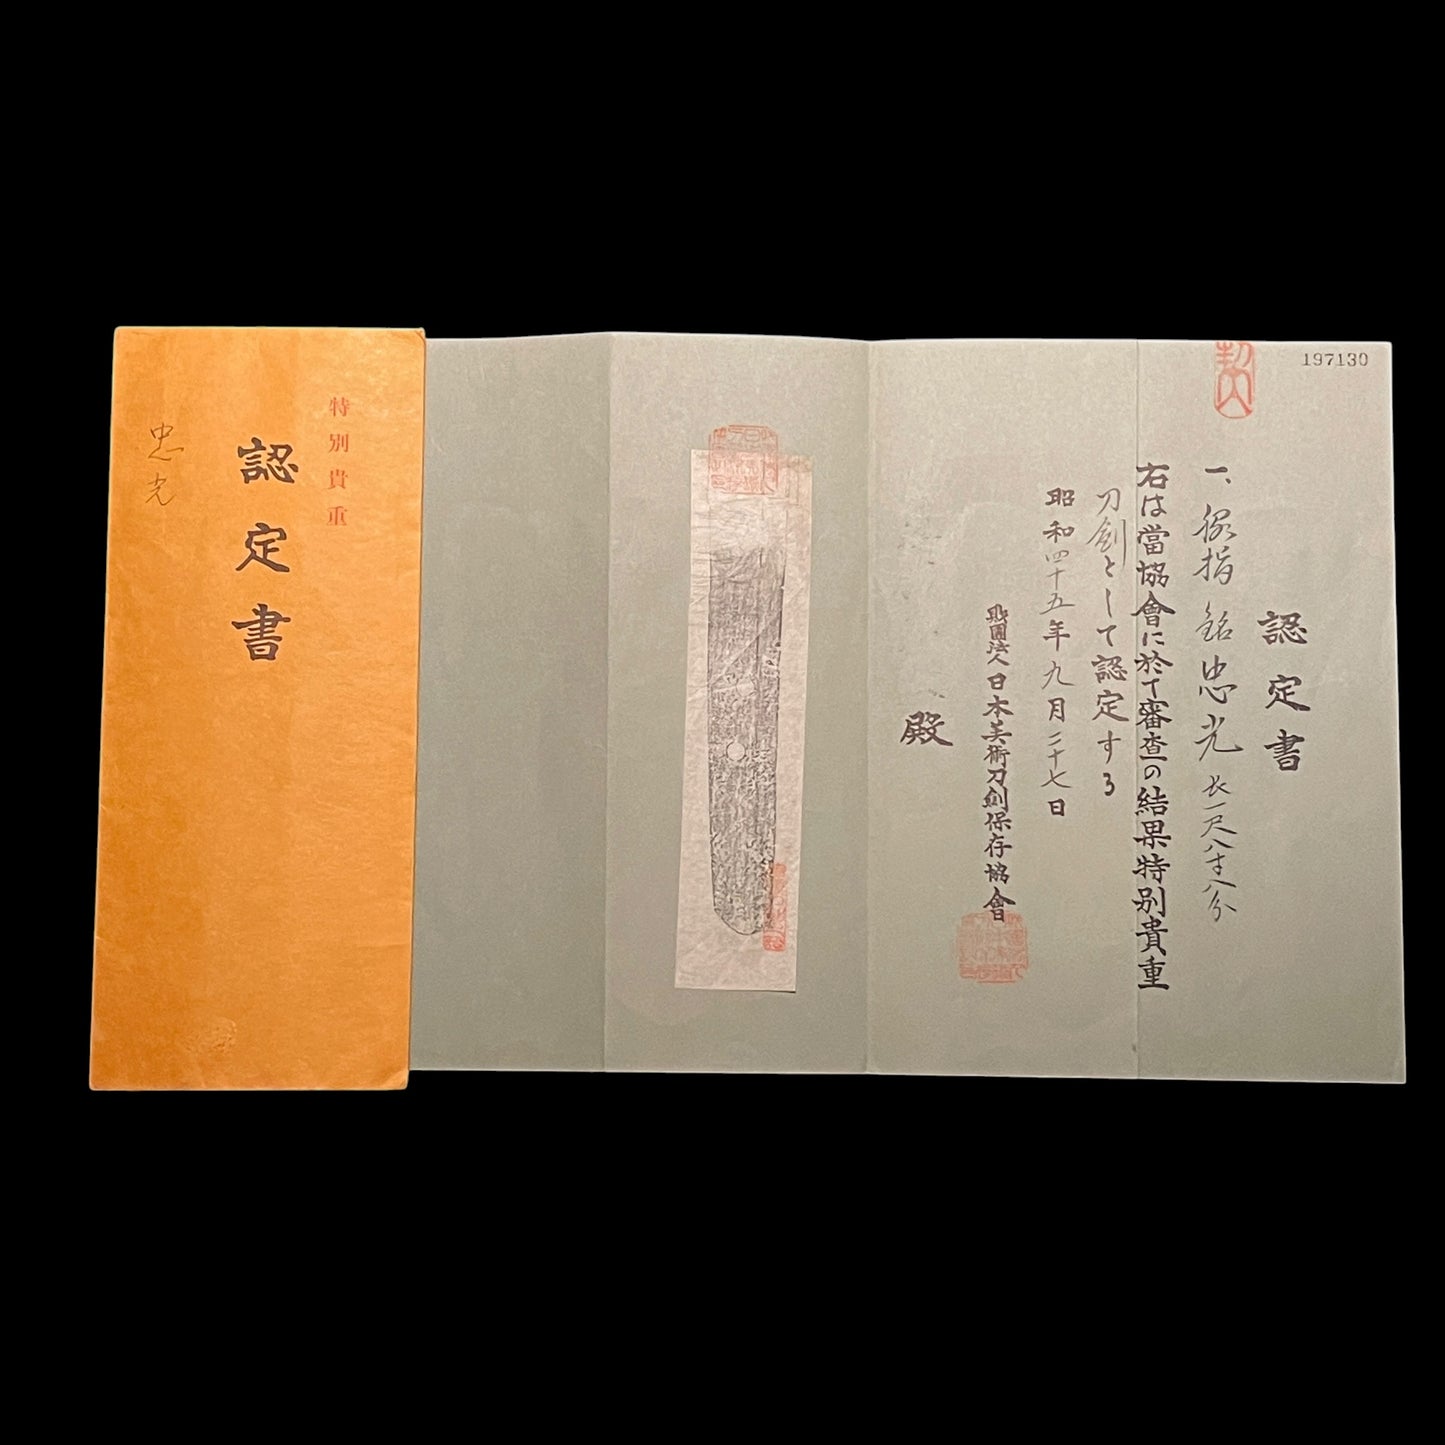 特別貴重
認定書
忠光
197130
認定書
一、脇指 銘 忠光 長一尺八寸八分
右は當協會に於て審査の結果特別貴重
刀劍として認定する
昭和四十五年九月二十七日
財團法人日本美術刀劍保存協會
殿